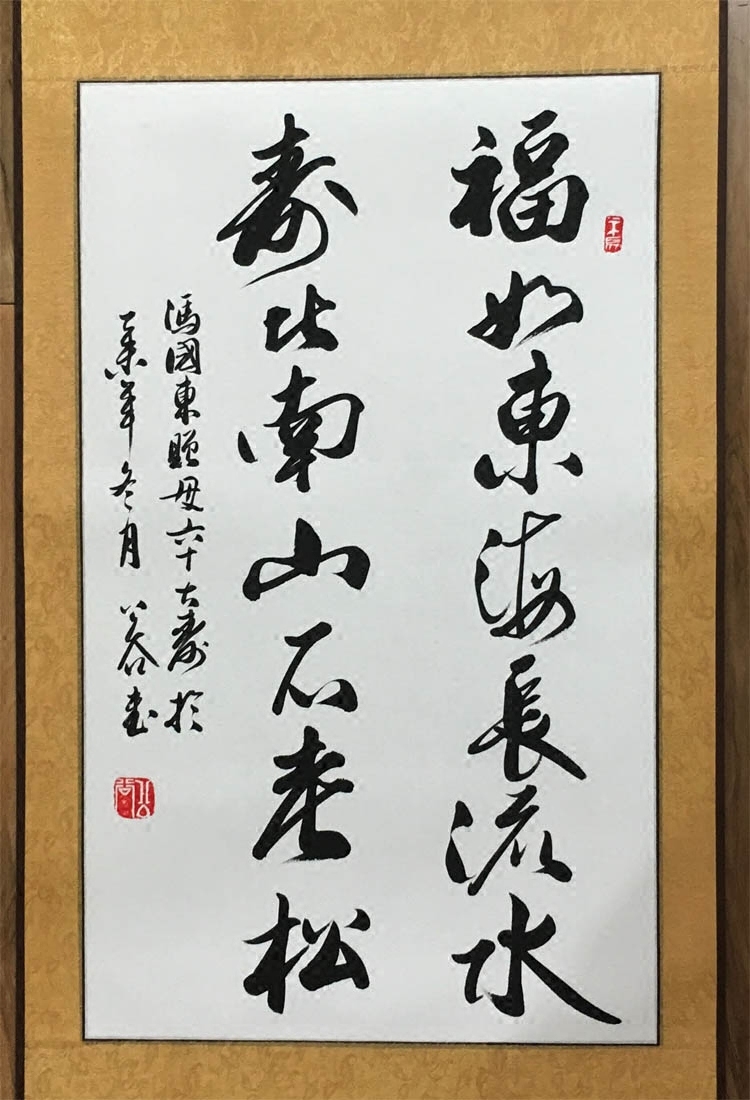 福如東海長流水
寿比南山不老松
馮國東贈母六十大寿於
乙未年冬月 书